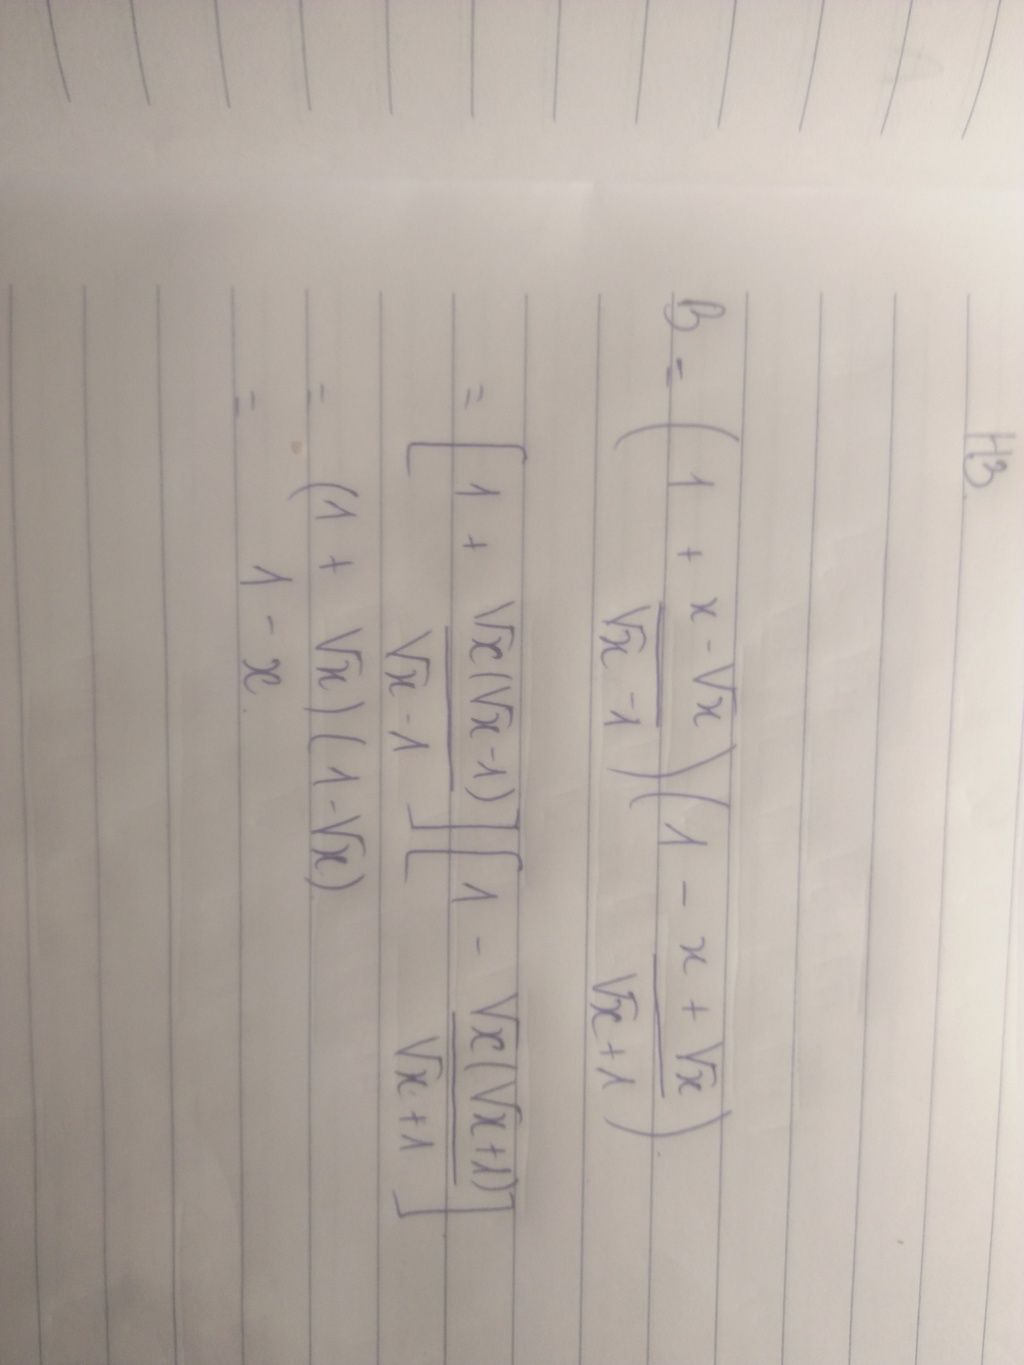 HB
B = (1 + x - √x / √x - 1)(1 - x + √x / √x + 1)
= [1 + √x(√x - 1) / √x - 1][1 - √x(√x + 1) / √x + 1]
= (1 + √x)(1 - √x)
= 1 - x.